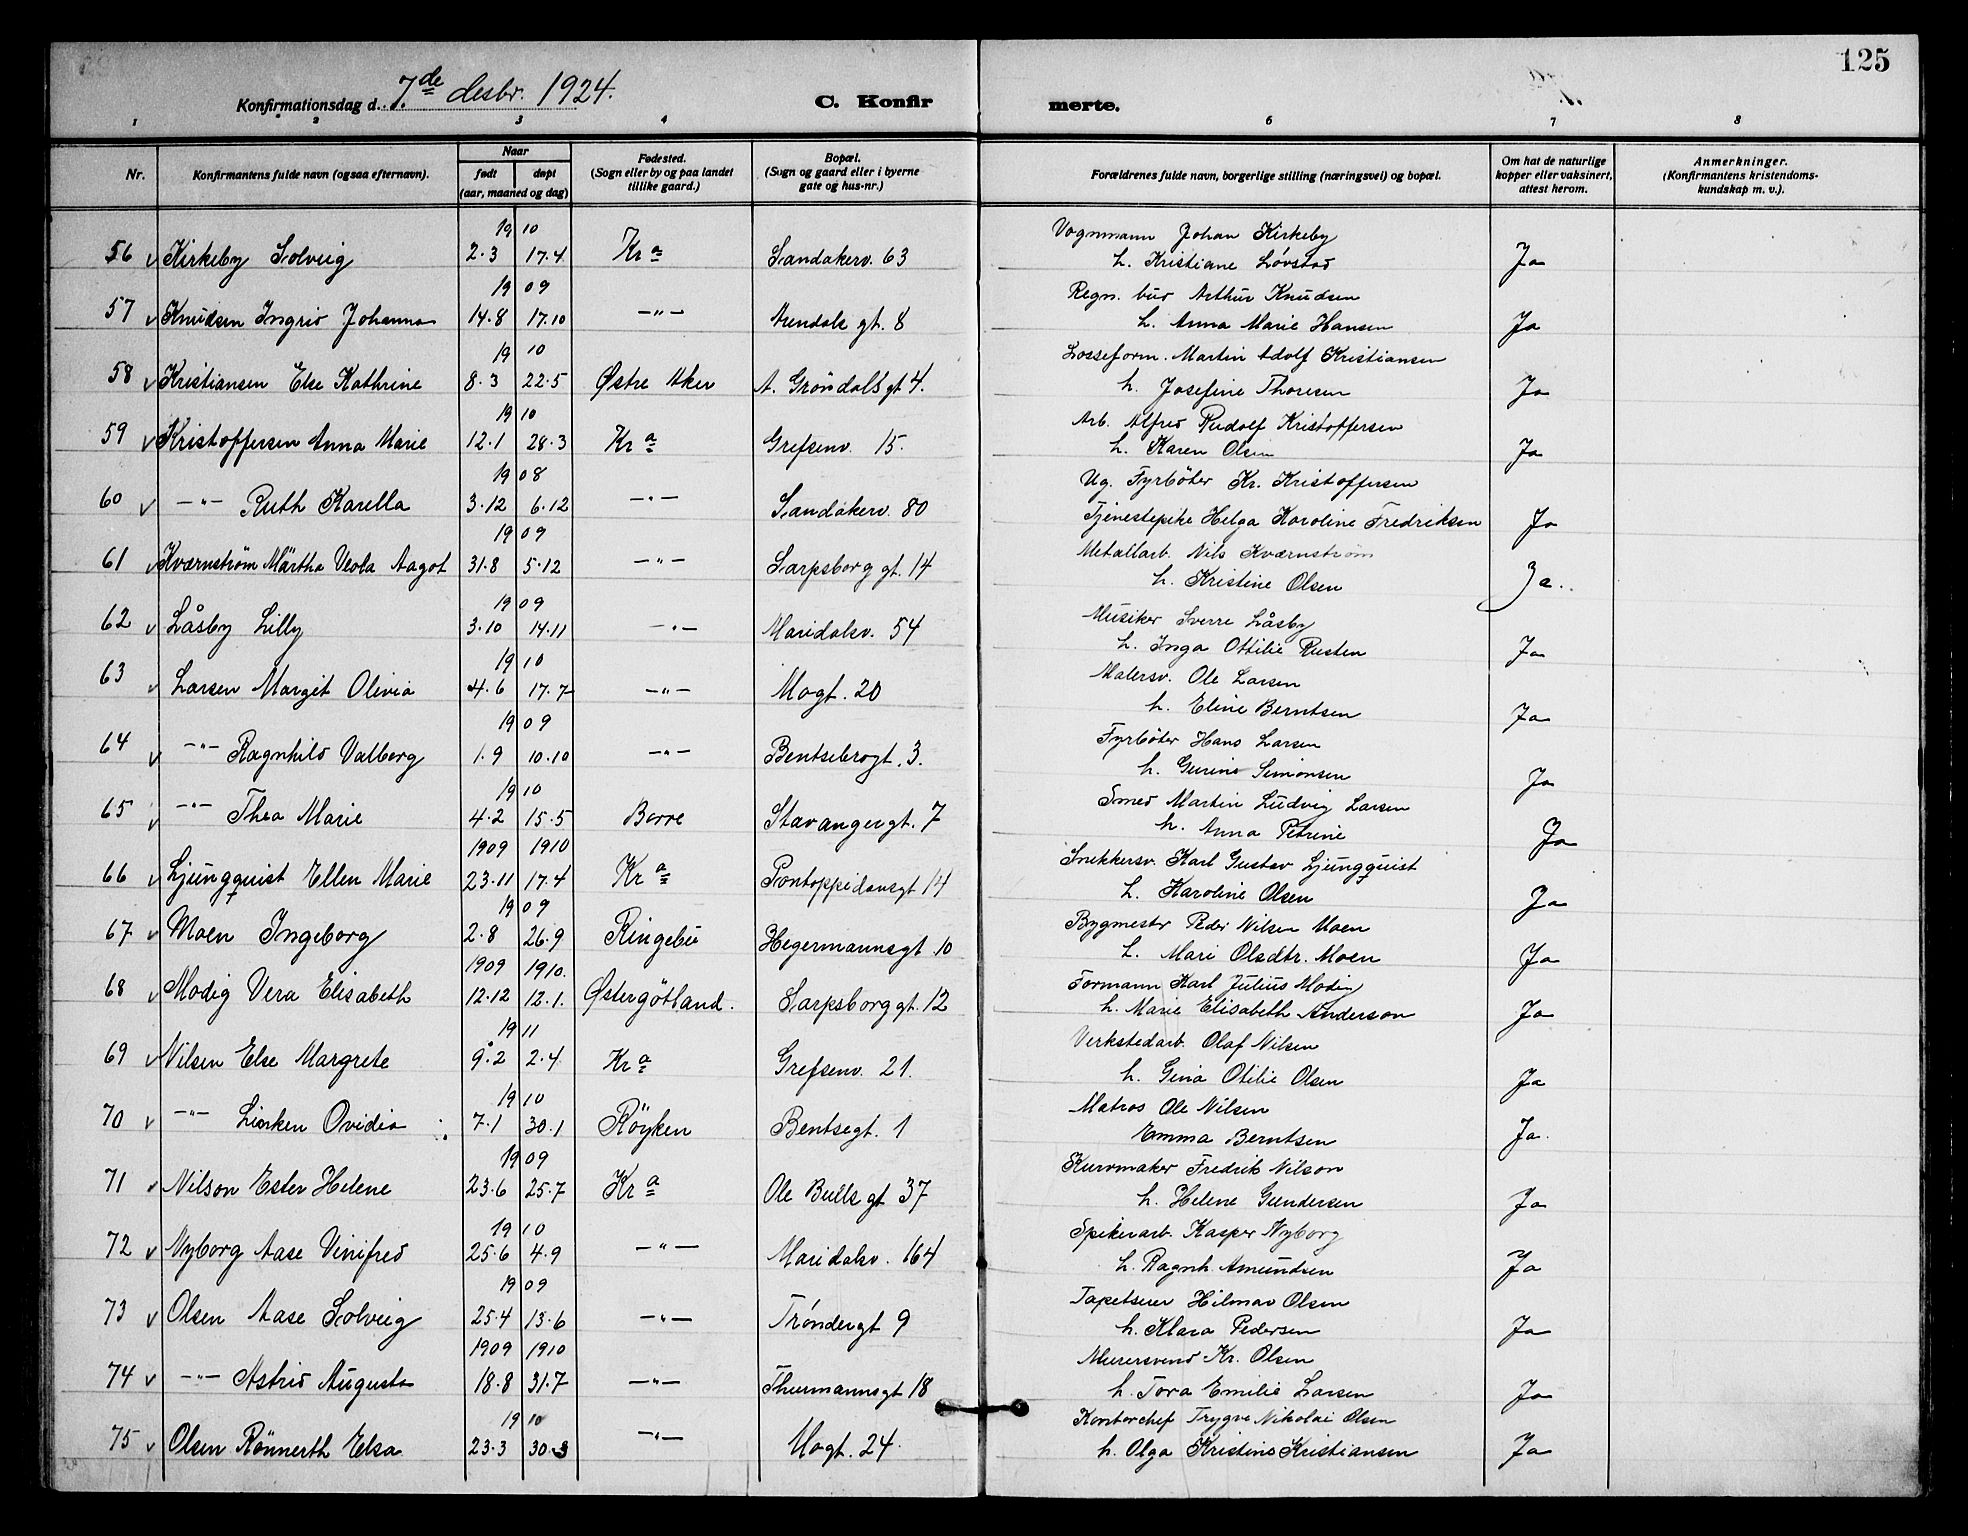 125
Konfirmationsdag d. 7de desbr. 1924.
C. Konfir merte.
1 2 3 4 6 7 8
Nr.
Konfirmantens fulde navn (ogsaa efternavn).
Naar
født døpt
(aar, maaned og dag)
Fødested.
(Sogn eller by og paa landet
tillike gaard.)
Bopæl.
(Sogn og gaard eller i byerne
gate og hus-nr.)
Forældrenes fulde navn, borgerlige stilling (næringsvei) og bopæl.
Om hat de naturlige
kopper eller vaksinert,
attest herom.
Anmerkninger.
(Konfirmantens kristendoms-
kundskap m. v.).
1910 Vognmann Johan Kirkeby
56 v Kirkeby Solveig 2.3 17.4 Kr a Sandakerv. 63 h. Kristiane Lövstad Ja
1909 Regn. bud Arthur Knudsen
57 v Knudsen Ingrid Johanna 14.8 17.10 -"- Arendals gt. 8 h. Anna Marie Hansen Ja
1910 Losseform. Martin Adolf Kristiansen
58 v Kristiansen Else Kathrine 8.3 22.5 Østre Aker A. Gröndals gt 4. h. Josefine Thoresen Ja
1910 Arb. Alfred Rudolf Kristoffersen
59 v Kristoffersen Anna Marie 12.1 28.3 Kr a Grefsenv. 15. h. Karen Olsen Ja
1908 Ug. Fyrböter Kr. Kristoffersen
60 v -"- Ruth Karella 3.12 6.12 -"- Sandakerv. 80 Tjenestepike Helga Karoline Fredriksen Ja
1909 Metallarb. Nils Kværnström
61 v Kværnström Märtha Viola Aagot 31.8 5.12 -"- Sarpsborg gt. 14 h. Kristine Olsen Ja.
1909 Musiker Sverre Låsby
62 v Låsby Lilly 3.10 14.11 -"- Maridalsv. 54 h. Inga Ottilie Rusten Ja
1910 Malersv. Ole Larsen
63 v Larsen Margit Olivia 4.6 17.7 -"- Mogt. 20 h. Eline Berntsen Ja
1909 Fyrböter Hans Larsen
64 v -"- Ragnhild Valborg 1.9 10.10 -"- Bentsebrogt. 3. h. Gurine Simonsen Ja
1910 Smed Martin Ludvig Larsen
65 v -"- Thea Marie 4.2 15.5 Borre Stavangergt. 7 h. Anna Petrine Ja
1909 1910 Snekkersv. Karl Gustav Ljungquist
66 v Ljungquist Ellen Marie 23.11 17.4 Kr a Pontoppidansgt 14 h. Karoline Olsen Ja
1909 Bygmester Peder Nilsen Moen
67 v Moen Ingeborg 2.8 26.9 Ringebu Hegermannsgt 10 h. Mari Olsdtr. Moen Ja
1909 1910. Formann Karl Julius Modig
68 v Modig Vera Elisabeth 12.12 12.1. Østergötland. Sarpsborg gt. 12 h. Marie Elisabeth Anderson Ja
1911 Verkstedarb. Olaf Nilsen
69 v Nilsen Else Margrete 9.2 2.4. Kr a Grefsenv. 21. h. Gina Otilie Olsen Ja
1910 Matros Ole Nilsen
70 v -"- Linken Ovidia 7.1 30.1 Röyken Bentsegt. 1 Emma Berntsen Ja.
1909 Kurvmaker Fredrik Nilson
71 v Nilson Ester Helene 23.6 25.7 Kr a Ole Bulls gt 37 h. Helene Gundersen Ja
1910 Spikerarb. Kasper Nyborg
72 v Nyborg Aase Vinifred 25.6 4.9 -"- Maridalsv. 164 h. Ragnh. Amundsen Ja
1909 Tapetserer Hilmar Olsen
73 v Olsen Aase Solveig 25.4 13.6 -"- Tröndergt 9 h. Klara Pedersen Ja
1909 1910 Murersvend Kr. Olsen
74 v -"- Astrid Augusta 18.8 31.7 -"- Thurmannsgt 18 h. Tora Emilie Larsen Ja
1910 Kontorchef Trygve Nikolai Olsen
75 v Olsen Rönnerth Elsa 23.3 30.3 -"- Mogt. 24. h. Olga Kristine Kristiansen Ja